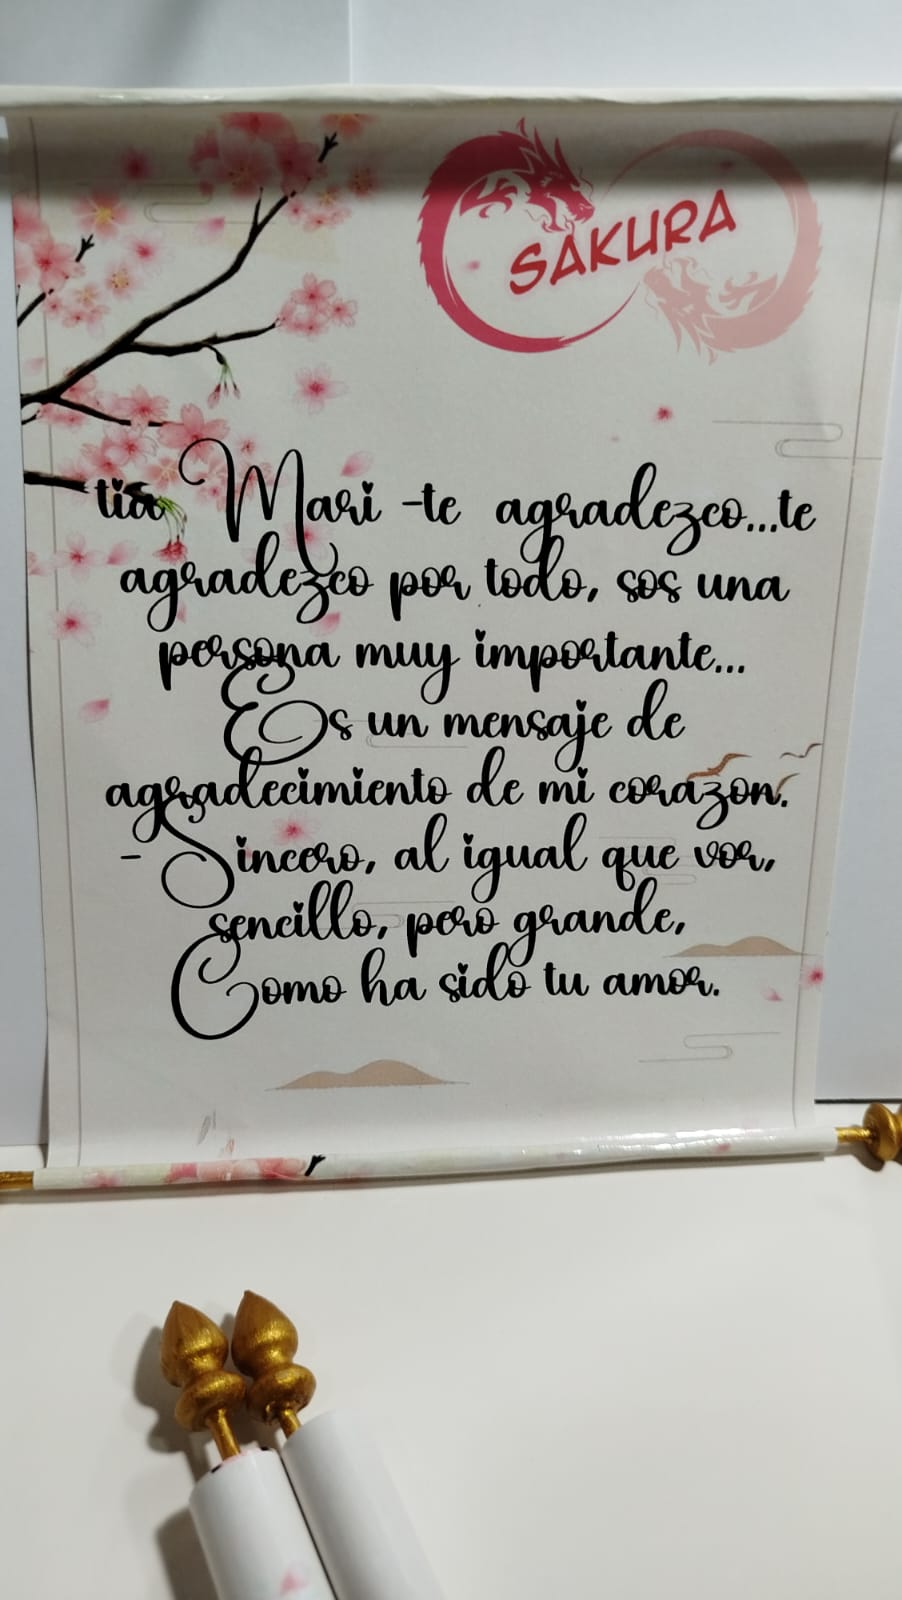 SAKURA
tia Mari -te agradezco...te
agradezco por todo, sos una
persona muy importante...
Es un mensaje de
agradecimiento de mi corazon.
- Sincero, al igual que vor,
sencillo, pero grande,
Como ha sido tu amor.